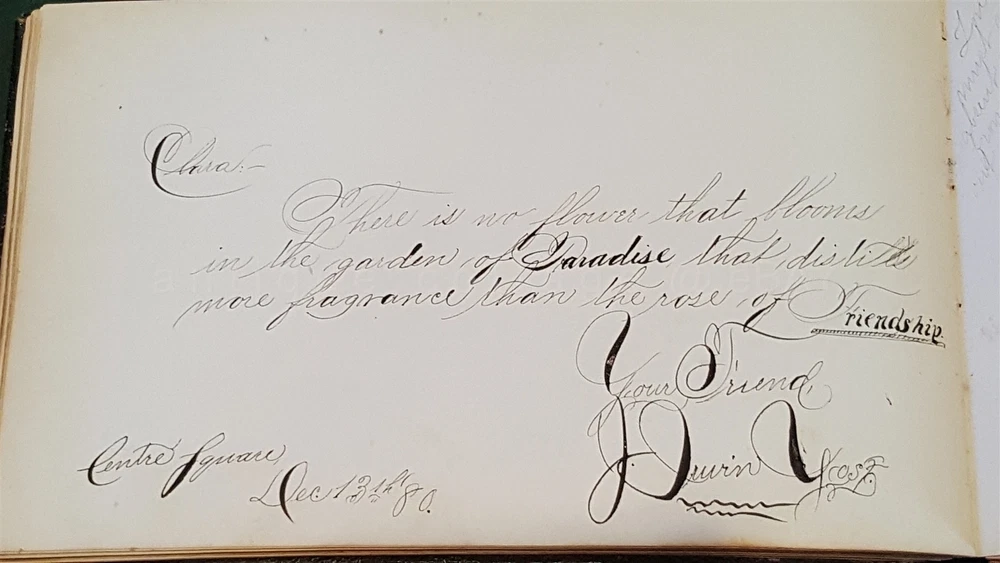 Clara:—
There is no flower that blooms
in the garden of Paradise that distills
more fragrance than the rose of Friendship.
Your Friend,
J. Irwin Yost
Centre Square,
Dec 13th 80.